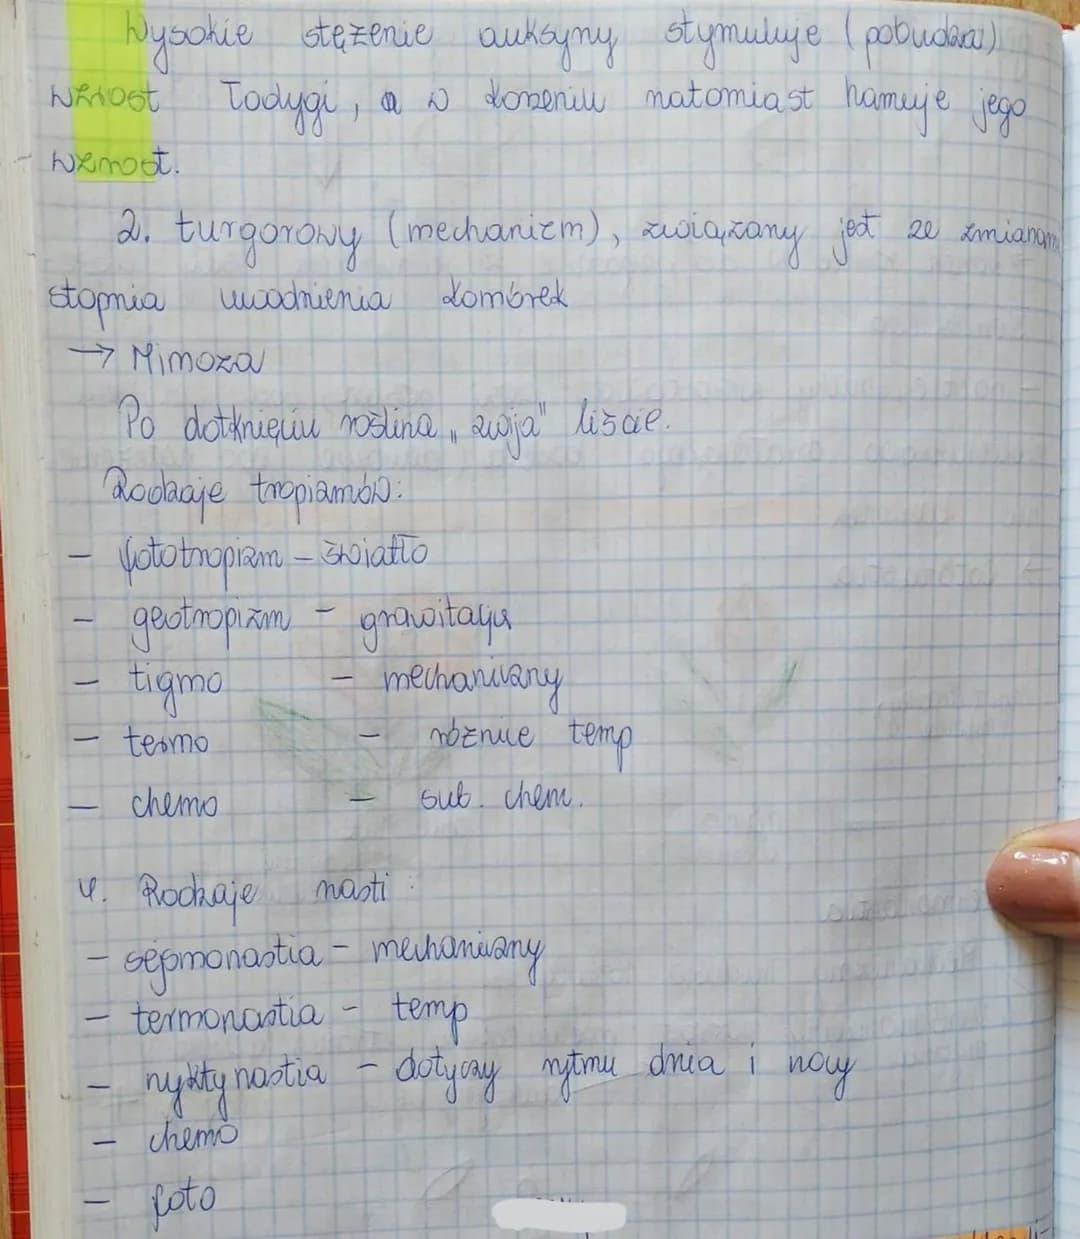 Wysokie stężenie auksyny stymuluje (pobudza)
wzrost łodygi, a w korzeniu natomiast hamuje jego
wzrost.
2. turgorowy (mechanizm), związany jest ze zmianami
stopnia uwodnienia komórek
→ Mimoza
Po dotknięciu roślina „zwija" liście.
Rodzaje tropizmów:
- fototropizm - światło
- geotropizm - grawitacja
- tigmo - mechaniczny
- termo - różnice temp
- chemo - sub. chem.
4. Rodzaje nasti:
- sejsmonastia - mechaniczny
- termonastia - temp
- nyktynastia - dotyczy rytmu dnia i nocy
- chemo
- foto